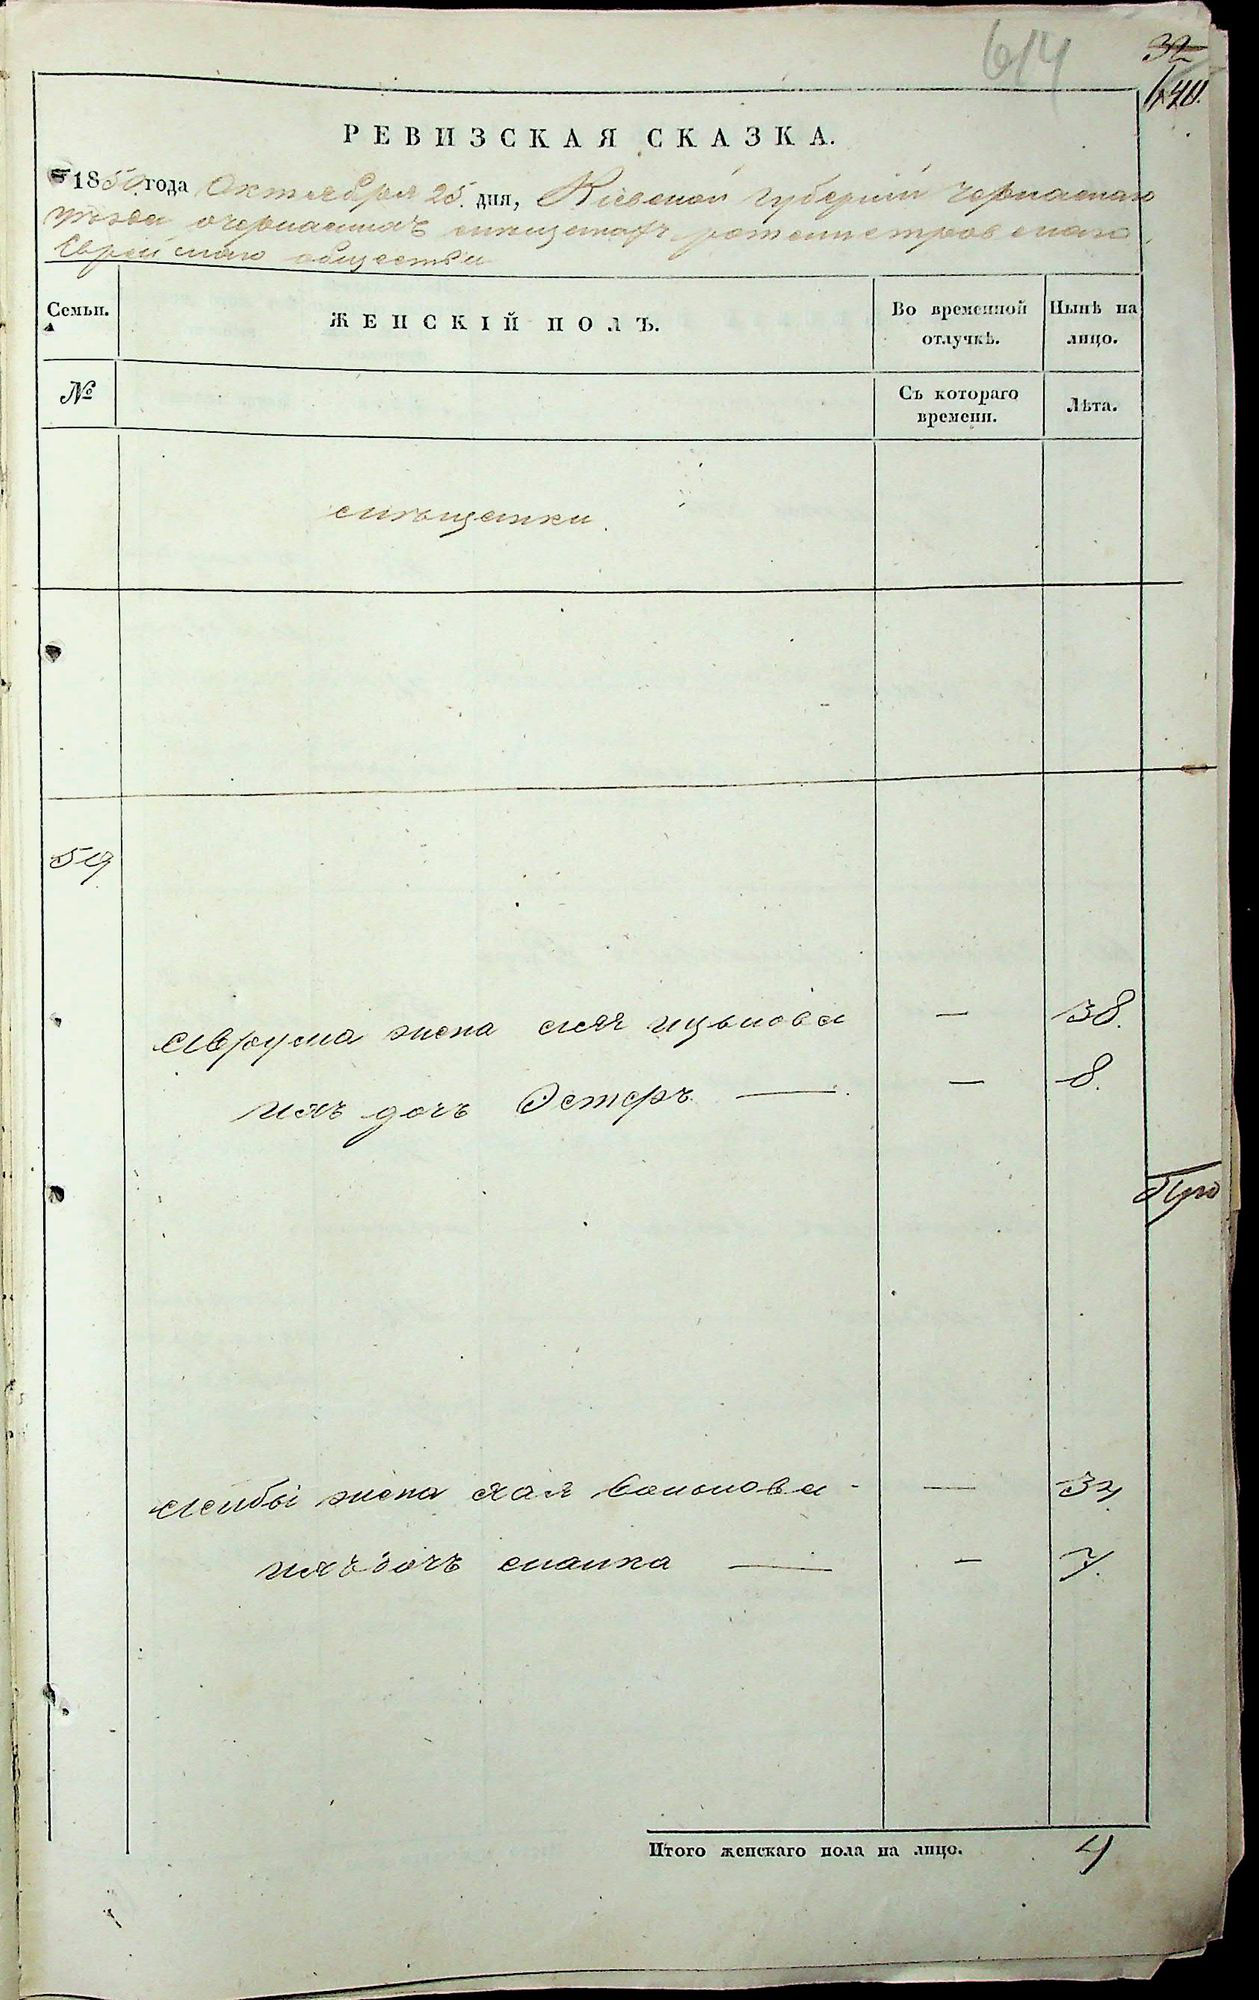 614
32
640.
РЕВИЗСКАЯ СКАЗКА.
1850 года Октября 25 дня, Кіевской губерніи Черкаскаго
уезда очеркаскихъ мещанахъ ротмистровскаго
Еврейскаго общества
Семьи.
ЖЕНСКІЙ ПОЛЪ.
Во временной
отлучкѣ.
Нынѣ на
лицо.
№
Съ котораго
времени.
Лѣта.
мѣщанки.
59
Аврума жена Ицькова — 38.
ихъ дочь Эстеръ — — 8.
Лейбы жена хая —
ихъ дочь малка — — 7.
Итого женскаго пола на лицо. 4